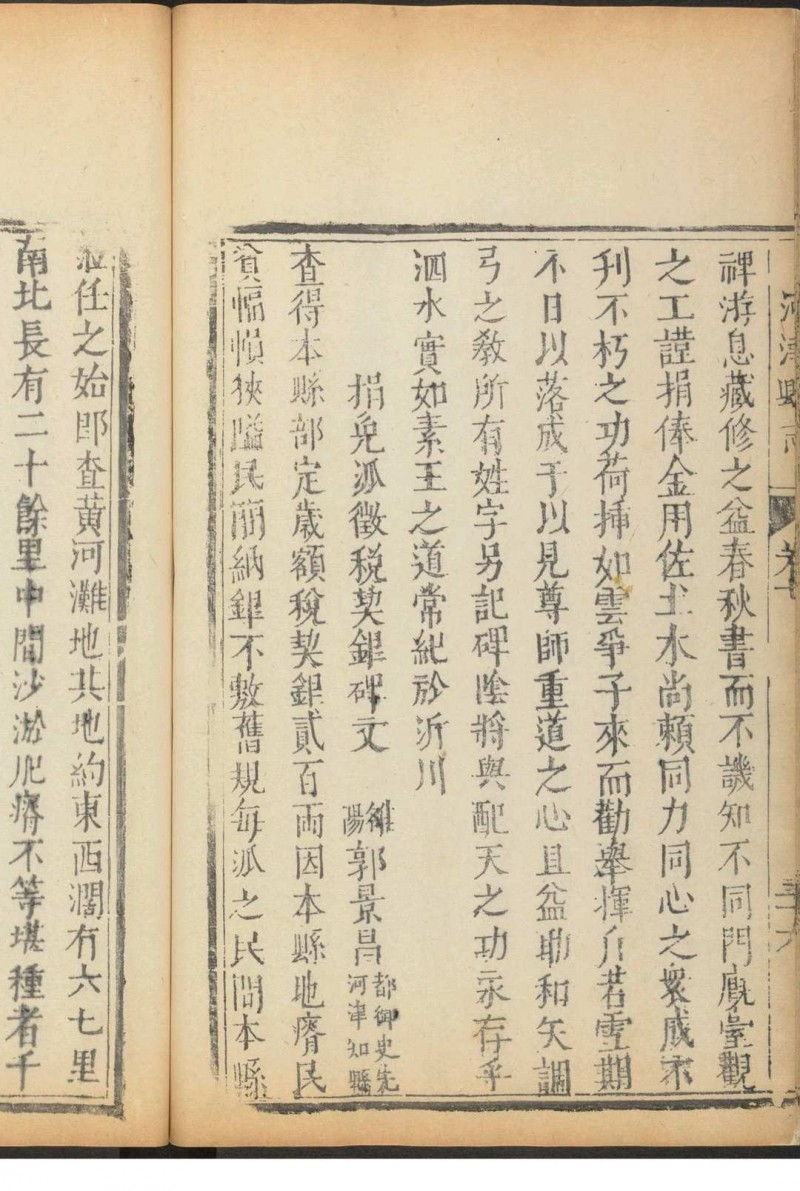 河津縣志
卷十
三十六
禆游息藏修之益春秋書而不譏知不同門廐臺觀
之工謹捐俸金用佐土水尚賴同力同心之衆咸不
刋不朽之功荷揷如雲爭子來而勸舉揮斤若雪期
不日以落成于以見尊師重道之心且益助和矢調
弓之教所有姓字另記碑陰將與配天之功永存乎
泗水實如素王之道常紀於沂川
捐免派徵稅契銀碑文 維陽 郭景昌 都御史先河津知縣
查得本縣部定歲額稅契銀貳百両因本縣地瘠民
貧幅慎狹隘民間納銀不敷舊規每派之民間本縣
涖任之始卽查黃河灘地共地約東西濶有六七里
南北長有二十餘里中間沙淤肥瘠不等堪種者千